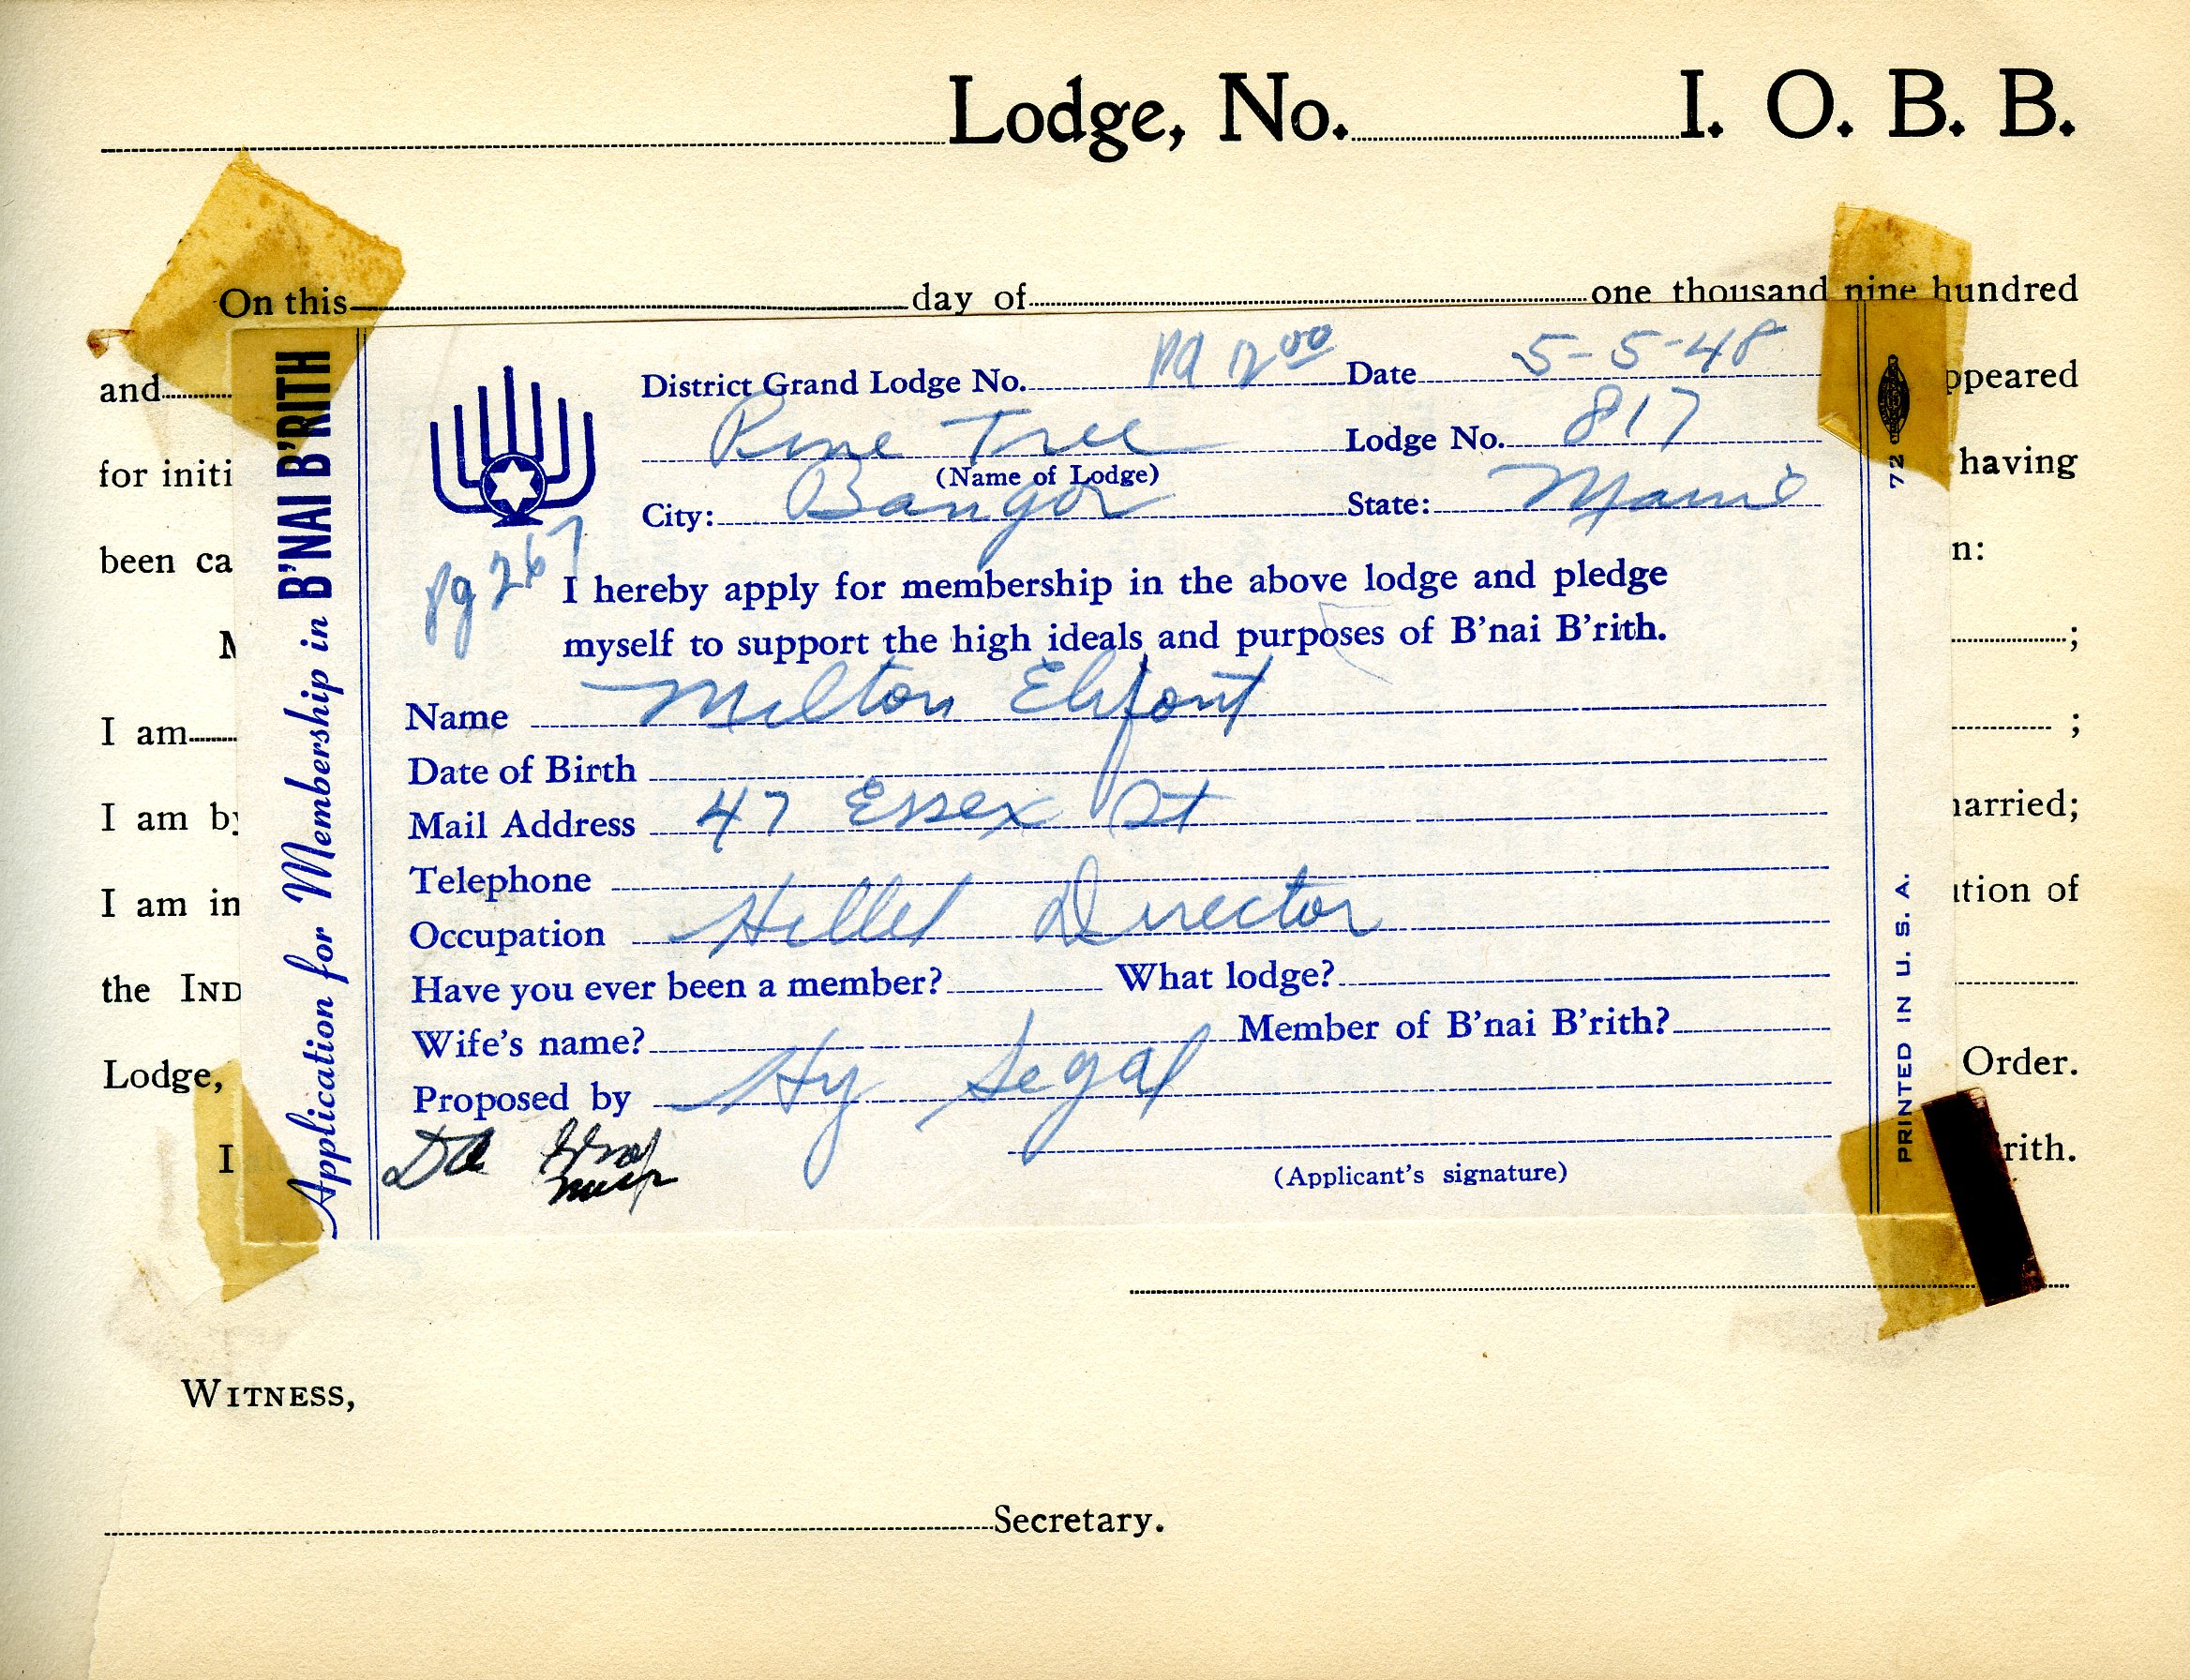 Lodge, No. I. O. B. B.
On this day of one thousand nine hundred
and ppeared
for initi having
been ca n:
I am ;
I am by arried;
I am in tion of
the IND
Lodge, Order.
I rith.
WITNESS,
Secretary.
Application for Membership in B'NAI B'RITH
District Grand Lodge No. Pd 12 00 Date 5-5-48
Pine Tree Lodge No. 817
(Name of Lodge)
City: Bangor State: Maine
pg 267
I hereby apply for membership in the above lodge and pledge
myself to support the high ideals and purposes of B'nai B'rith.
Name Milton Elefont
Date of Birth
Mail Address 47 Essex St
Telephone
Occupation Hillel Director
Have you ever been a member? What lodge?
Wife's name? Member of B'nai B'rith?
Proposed by Hy Segal
(Applicant's signature)
72
PRINTED IN U. S. A.